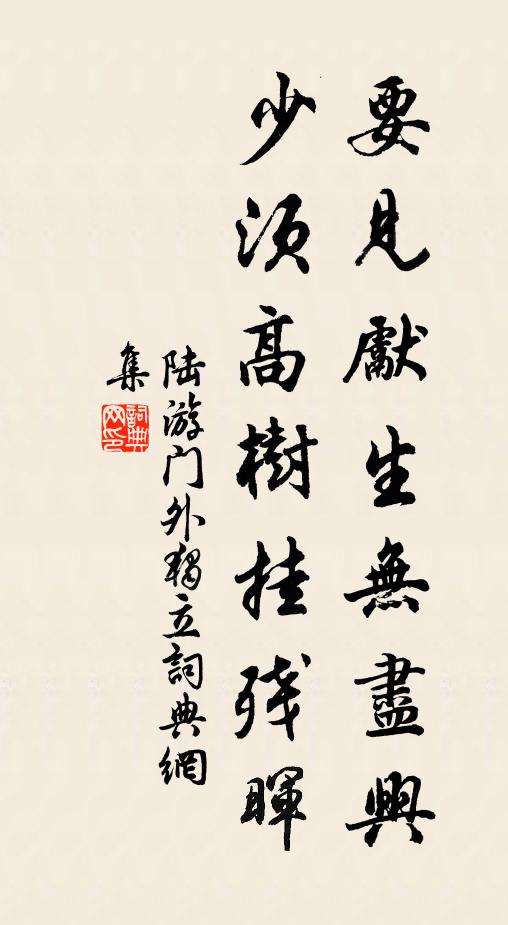 要見獻生無盡興
少須高樹挂殘暉
陆游门外獨立詞典網
集
詞典
网印